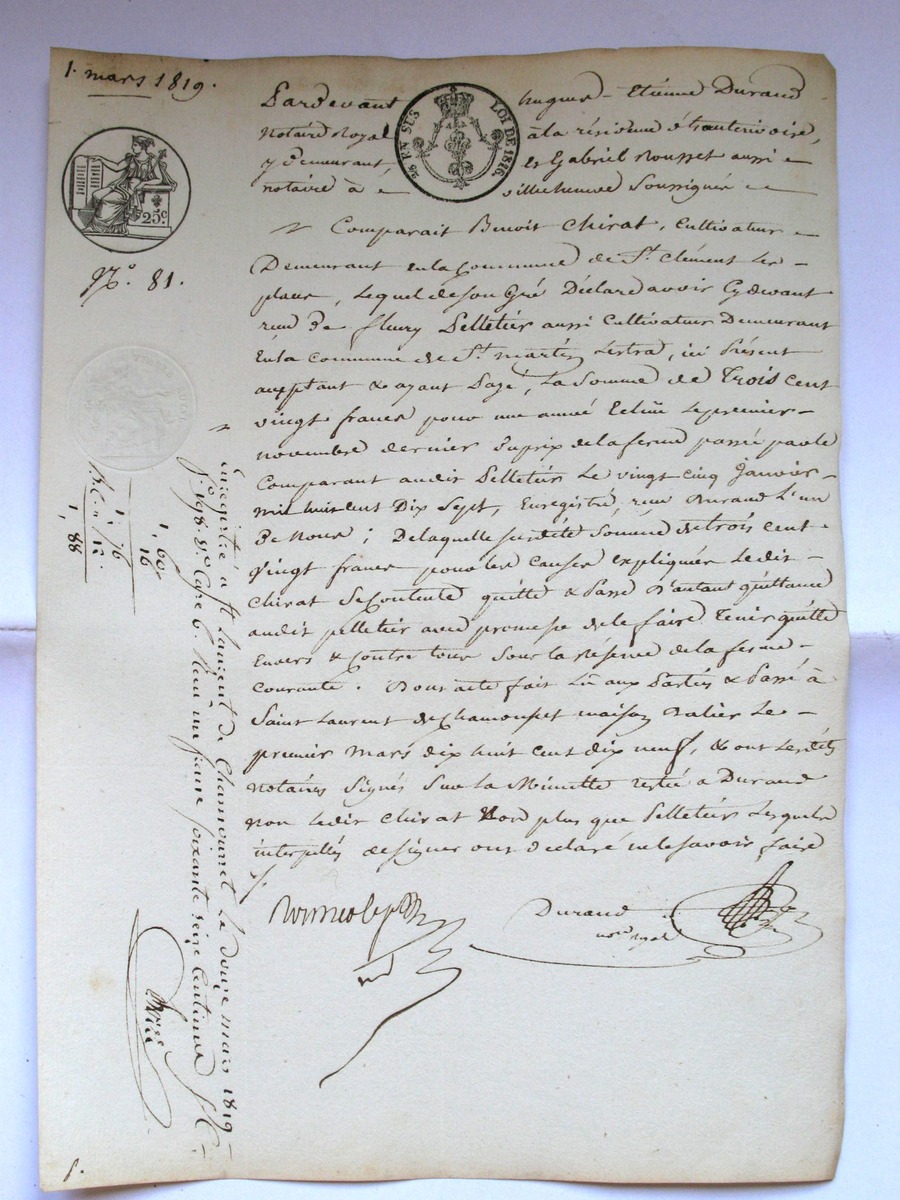 1. mars 1819.
Pardevant hugues - Etienne Durand
Notaire Royal à la résidence d'hauterivoire,
y demeurant et Gabriel Rousset aussi
notaire à villecheneve Soussignés
25 EN SUS LOI DE 1816.
25c
N.° 81.
Comparait Benoit Chirat, Cultivateur
Demeurant en la Commune de St. Clément les
places, lequel de son Gré Déclare avoir Cydevant
reçu De fleury Pelletier aussi Cultivateur Demeurant
En la commune de St. martin Lestra, ici Présent
acceptant & ayant Payé, la Somme de Trois cent
vingt francs pour une année Echue le premier
novembre dernier Du prix de la ferme passée par le
Comparant audit Pelletier le vingt cinq Janvier
mil huit cent Dix Sept, Enregistré, reçu Durand L'un
De Nous; De laquelle susdite Somme de trois cent
vingt francs pour les causes expliquées ledit
Chirat Se Contente quitte & Passe D'autant quittance
audit pelletier avec promesse de le faire Tenir quitte
Envers & Contre tous Sous la Réserve de la ferme
courante. Dont acte fait Lu aux Parties & Passé à
Saint Laurent de Chamousset maison Le
premier Mars dix huit cent dix neuf, & ont Lesdits
notaires Signés Sur la Minutte restée à Durand
non ledit Chirat Non plus que Pelletier Lesquels
interpellés de signer ont déclaré ne le savoir faire
Durand
not. royal
Enregistré à St Laurent de Chamousset le douze mars 1819
f.° 198. V.° Case 6. Reçu un franc soixante seize Centimes
1, 60
16
1. 76
12
1, 88